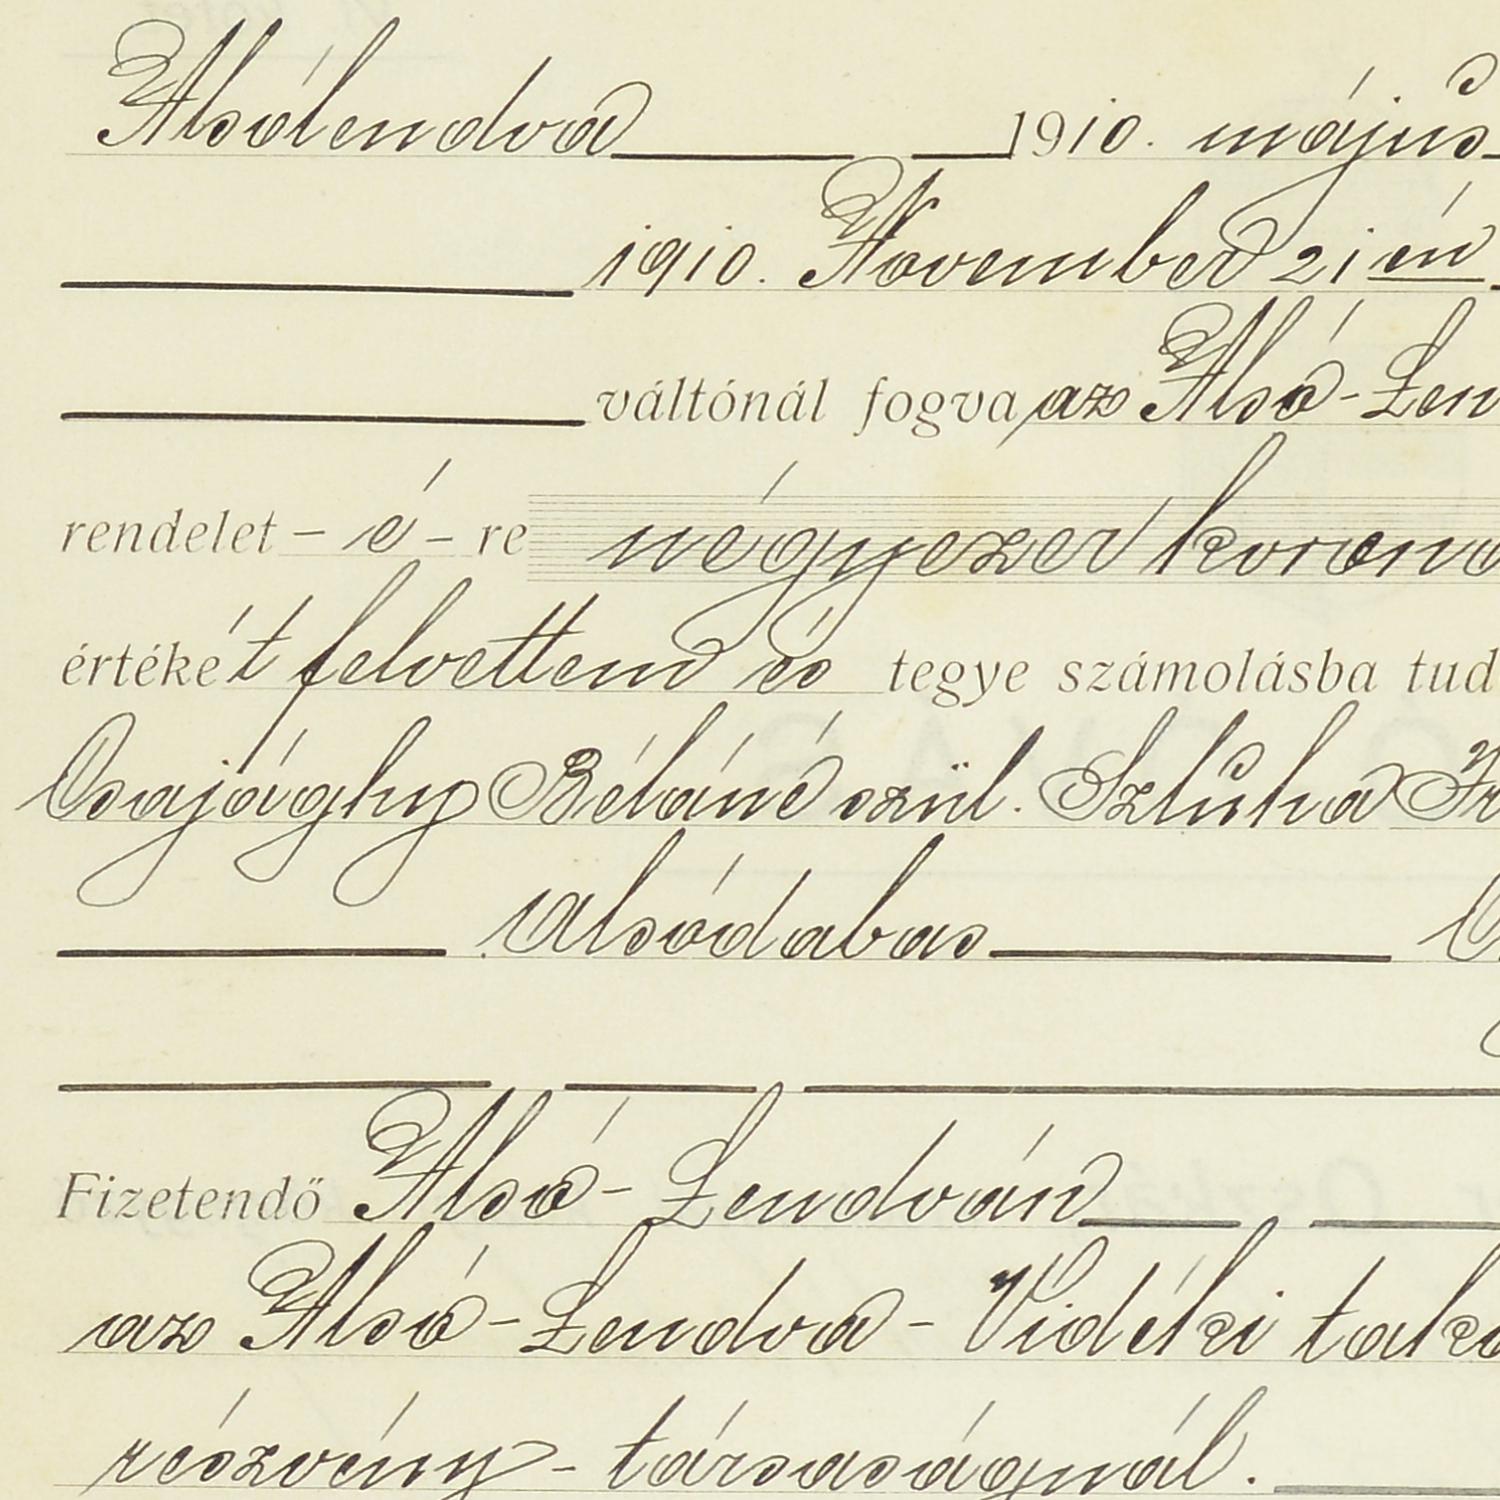 Alsólendva 1910. május
1910. November 21 én
váltónál fogva az Alsó-Len
rendelet - é - re négyezer koron
értékét felvettem és tegye számolásba tud
Csajághy Béláné szül. Szluha Fr
Alsódabas
Fizetendő Alsó-Lendván
az Alsó-Lendva-Vidéki taka
részvény-társaságnál.